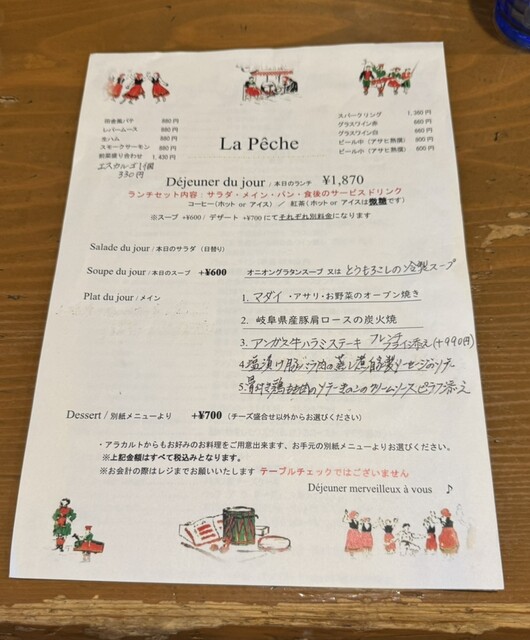 田舎風パテ 880円
レバームース 880円
生ハム 880円
スモークサーモン 880円
前菜盛り合わせ 1,430円
エスカルゴ 1個
330円
La Pêche
スパークリング 1,360円
グラスワイン赤 660円
グラスワイン白 660円
ビール中（アサヒ熟撰）
ビール小（アサヒ熟撰） 600円
Déjeuner du jour / 本日のランチ ¥1,870
ランチセット内容 : サラダ・メイン・パン・食後のサービスドリンク
コーヒー(ホット or アイス) / 紅茶(ホット or アイスは微糖です)
※スープ +¥600 / デザート +¥700 にてそれぞれ別料金になります
Salade du jour / 本日のサラダ (日替り)
Soupe du jour / 本日のスープ +¥600 オニオングラタンスープ 又は とうもろこしの冷製スープ
Plat du jour / メイン
1. マダイ ・アサリ・お野菜のオーブン焼き
2. 岐阜県産豚肩ロースの炭火焼
3. アンガス牛ハラミステーキ フレンチフライ添え(+990円)
4. 塩漬け豚バラ肉の蒸し煮 自家製ソーセージのソテー
5. 骨付き鶏もも肉のソテー きのこのクリームソース ピラフ添え
Dessert / 別紙メニューより +¥700 (チーズ盛合せ以外からお選びください)
・アラカルトからもお好みのお料理をご用意出来ます、お手元の別紙メニューよりお選びください。
※上記金額はすべて税込みとなります。
※お会計の際はレジまでお願いいたします テーブルチェックではございません
Déjeuner merveilleux à vous ♪